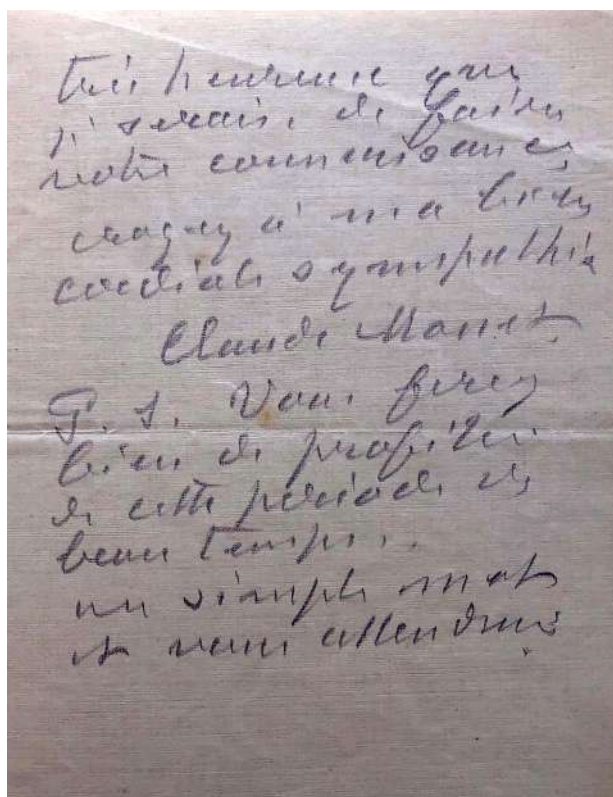 très heureux que
je serais, de faire
votre connaissance,
croyez à ma bien
cordiale sympathie
Claude Monet
P. S. Vous ferez
bien de profiter
de cette période de
beau temps..
un simple mot
et vous attendrai